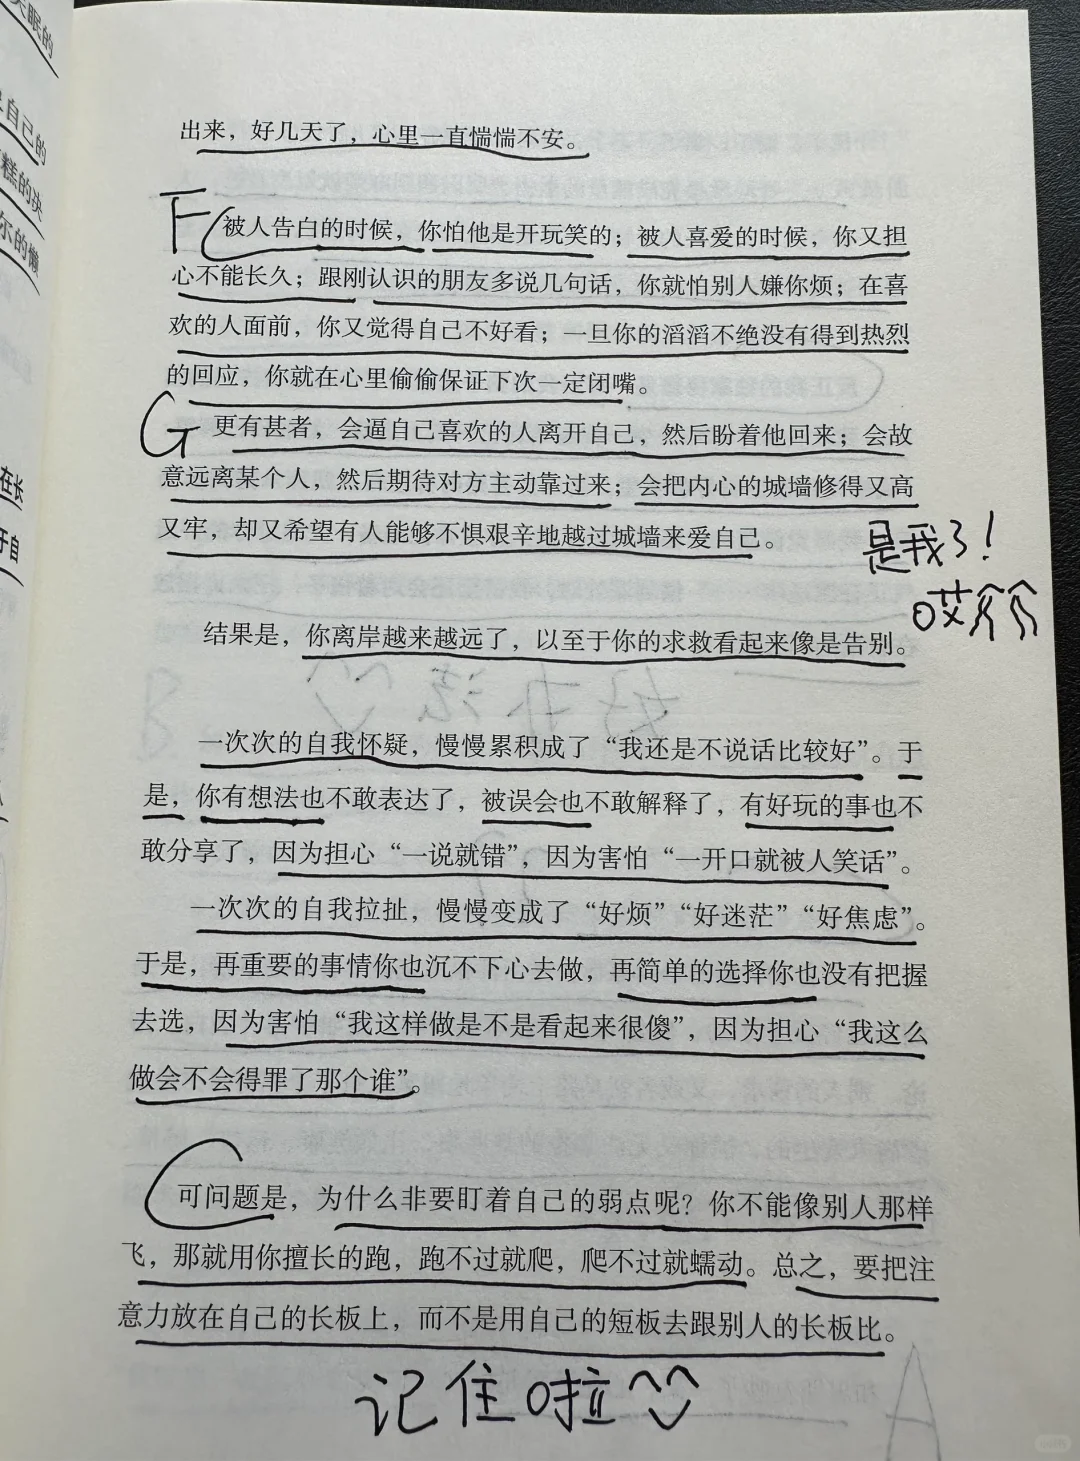 出来，好几天了，心里一直惴惴不安。
F 被人告白的时候，你怕他是开玩笑的；被人喜爱的时候，你又担
心不能长久；跟刚认识的朋友多说几句话，你就怕别人嫌你烦；在喜
欢的人面前，你又觉得自己不好看；一旦你的滔滔不绝没有得到热烈
的回应，你就在心里偷偷保证下次一定闭嘴。
G 更有甚者，会逼自己喜欢的人离开自己，然后盼着他回来；会故
意远离某个人，然后期待对方主动靠过来；会把内心的城墙修得又高
又牢，却又希望有人能够不惧艰辛地越过城墙来爱自己。
是我了！
哎
结果是，你离岸越来越远了，以至于你的求救看起来像是告别。
一次次的自我怀疑，慢慢累积成了“我还是不说话比较好”。于
是，你有想法也不敢表达了，被误会也不敢解释了，有好玩的事也不
敢分享了，因为担心“一说就错”，因为害怕“一开口就被人笑话”。
一次次的自我拉扯，慢慢变成了“好烦”“好迷茫”“好焦虑”。
于是，再重要的事情你也沉不下心去做，再简单的选择你也没有把握
去选，因为害怕“我这样做是不是看起来很傻”，因为担心“我这么
做会不会得罪了那个谁”。
可问题是，为什么非要盯着自己的弱点呢？你不能像别人那样
飞，那就用你擅长的跑，跑不过就爬，爬不过就蠕动。总之，要把注
意力放在自己的长板上，而不是用自己的短板去跟别人的长板比。
记住啦